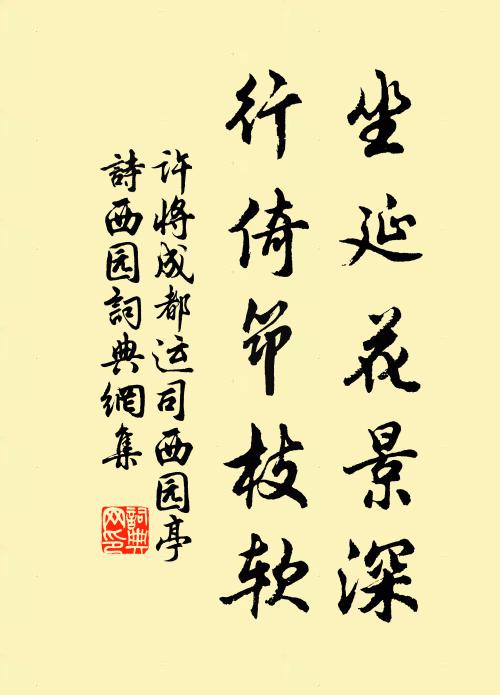 坐延花景深
行倚筇枝软
许将成都运司西园亭
詩西园詞典網集
詞典
网印